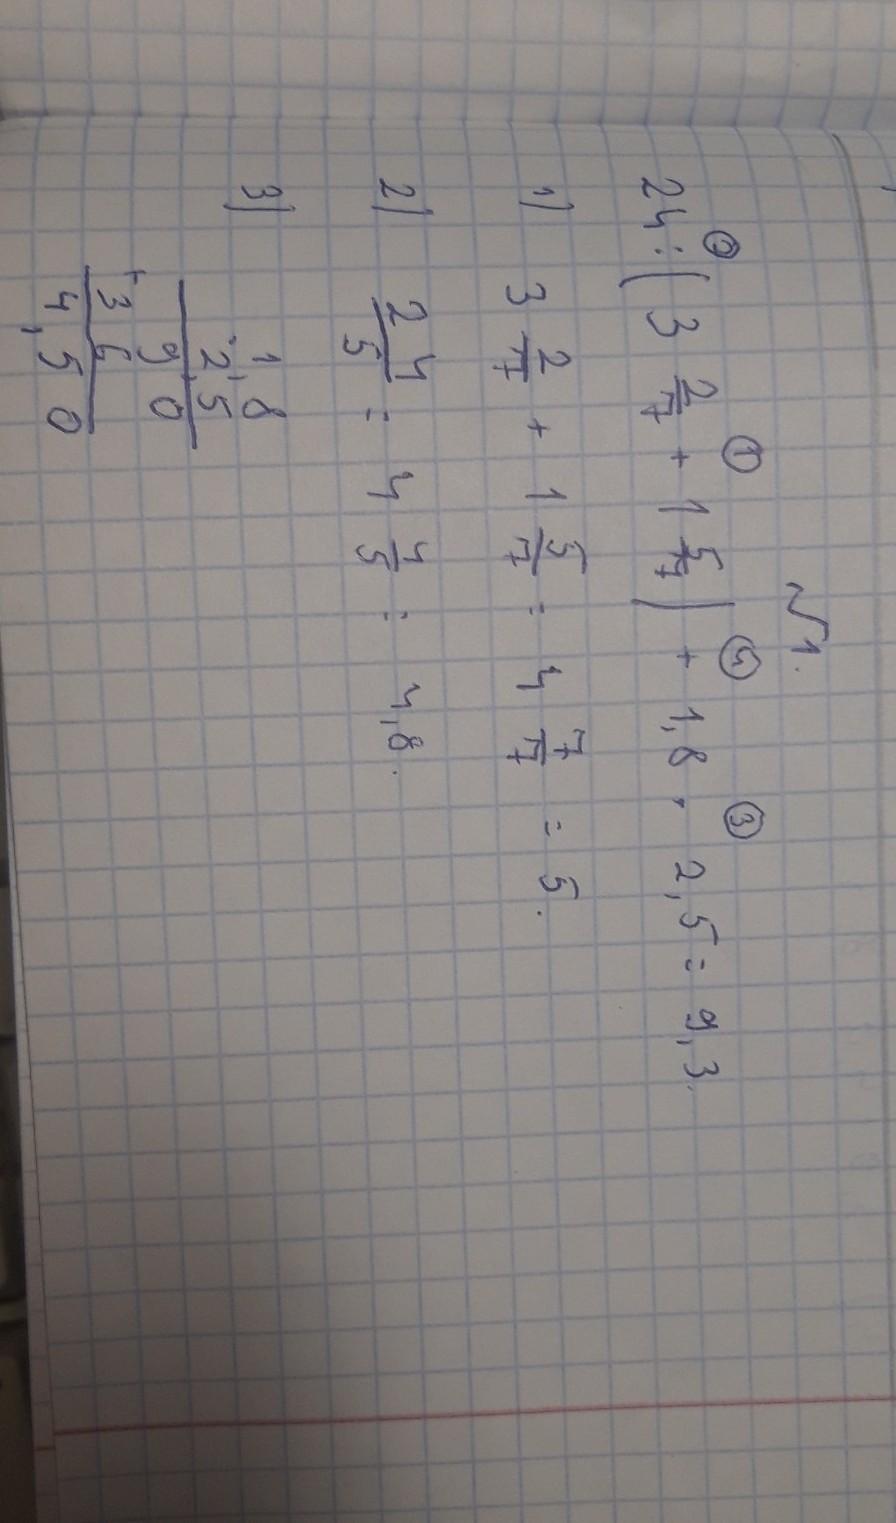 №1.
② ① ④ ③
24 : ( 3 2/7 + 1 5/7 ) + 1,8 · 2,5 = 9,3.
1) 3 2/7 + 1 5/7 = 4 7/7 = 5.
2) 24/5 = 4 4/5 = 4,8.
3) 1,8
2,5
9 0
+ 3 6
4,5 0